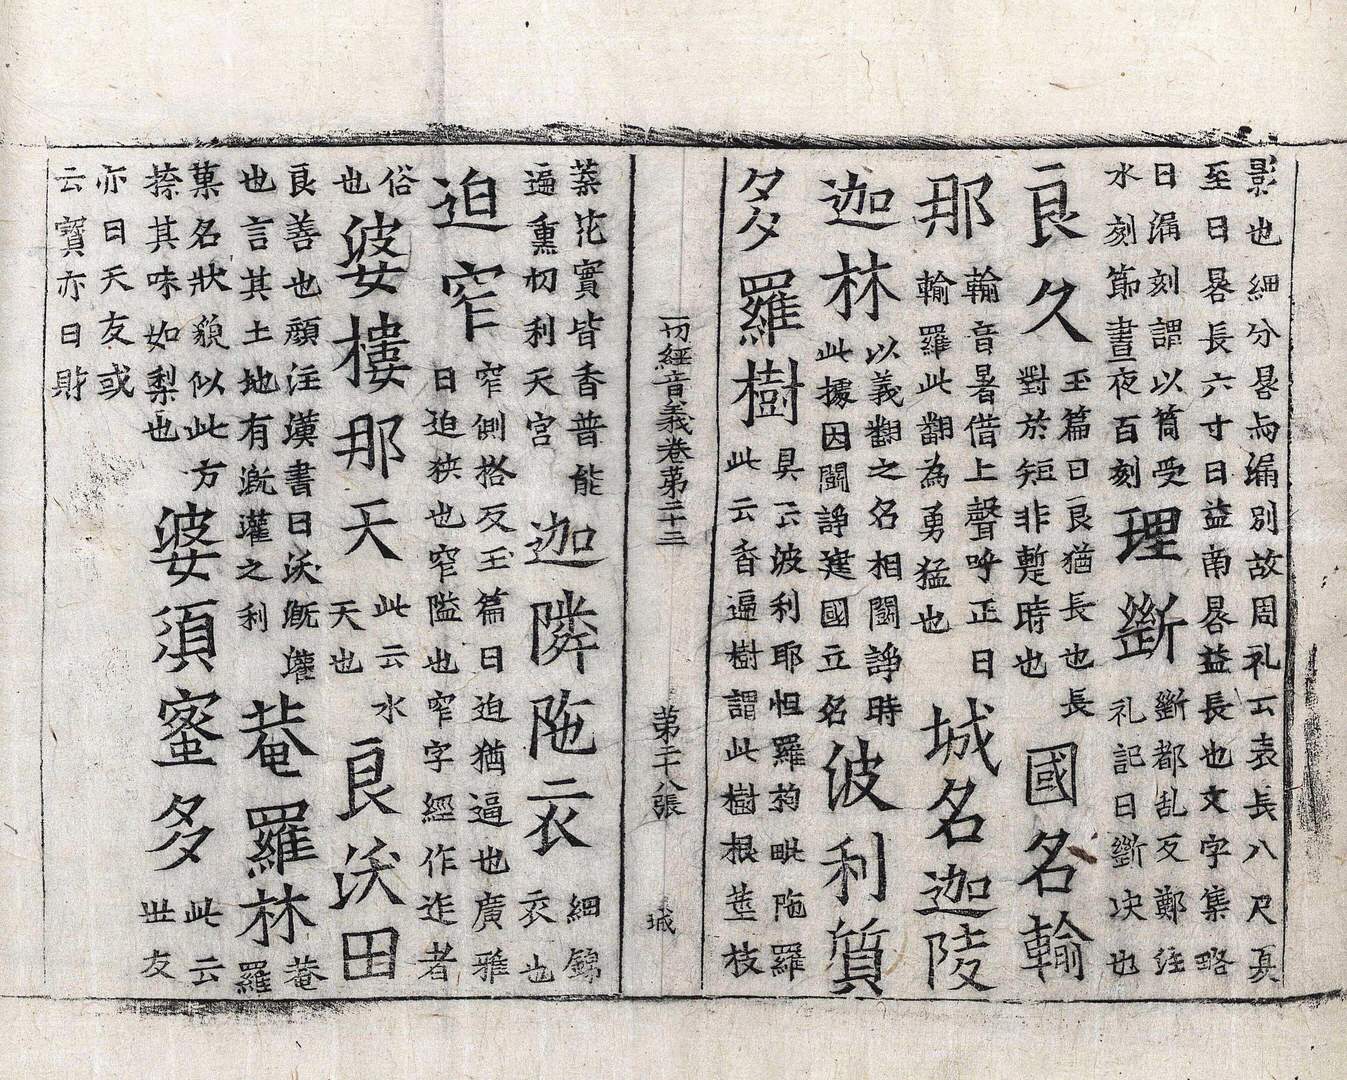 影也細分晷与漏別故周礼云表長八尺夏
至日晷長六寸日益南晷益長也文字集略
曰漏刻謂以筒受
水刻節晝夜百刻
理斷
斷都乱反鄭注
礼記曰斷决也
良久
玉篇曰良猶長也長
對於短非蹔時也
國名輸
那
輸音暑借上聲呼正曰
輸羅此翻為勇猛也
城名迦陵
迦林
以義翻之名相鬪諍時
此據因鬪諍建國立名
波利質
多羅樹
具云波利耶怛羅拘毗陁羅
此云香遍樹謂此樹根莖枝
一切經音義卷第二十三 第二十八張 城
葉花實皆香普能
遍熏忉利天宮
迦隣陁衣
細錦
衣也
迫窄
窄側格反玉篇曰迫猶逼也廣雅
曰迫狹也窄隘也窄字經作迮者
俗
也
婆樓那天
此云水
天也
良沃田
良善也顔注漢書曰沃溉灌
也言其土地有溉灌之利
菴羅林
菴
羅
菓名狀貌似此方
㮈其味如梨也
婆須蜜多
此云
世友
亦曰天友或
云寶亦曰財